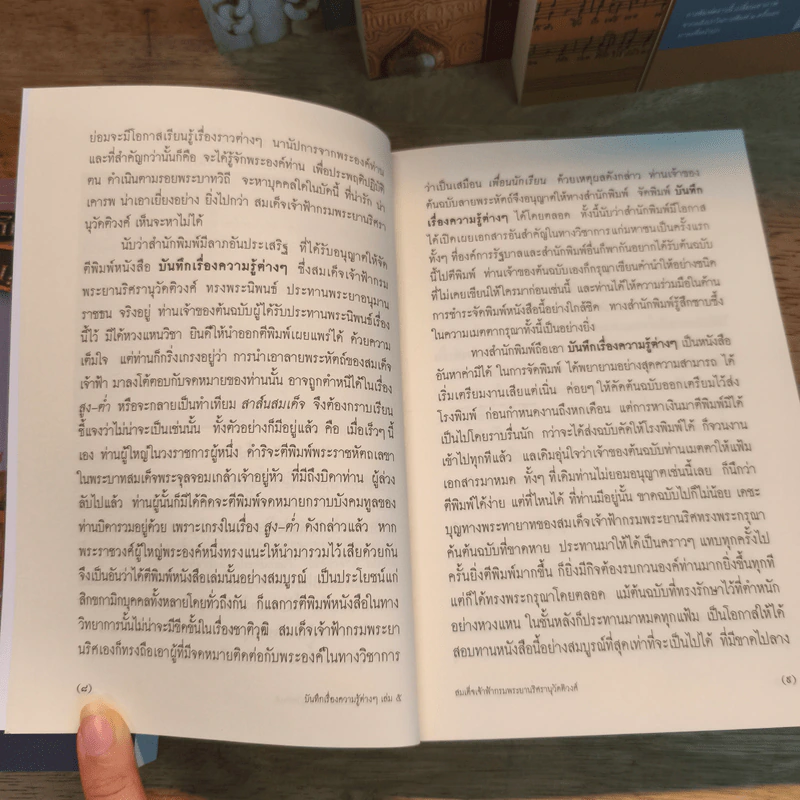 ย่อมจะมีโอกาสเรียนรู้เรื่องราวต่างๆ นานัปการจากพระองค์ท่าน
และที่สำคัญกว่านั้นก็คือ จะได้รู้จักพระองค์ท่าน เพื่อประพฤติปฏิบัติ
ตน ดำเนินตามรอยพระบาทวิถี จะหาบุคคลใดในบัดนี้ ที่น่ารัก น่า
เคารพ น่าเอาเยี่ยงอย่าง ยิ่งไปกว่า สมเด็จเจ้าฟ้ากรมพระยานริศรา
นุวัดติวงศ์ เห็นจะหาไม่ได้
นับว่าสำนักพิมพ์มีลาภอันประเสริฐ ที่ได้รับอนุญาตให้จัด
ตีพิมพ์หนังสือ บันทึกเรื่องความรู้ต่างๆ ซึ่งสมเด็จเจ้าฟ้ากรม
พระยานริศรานุวัดติวงศ์ ทรงพระนิพนธ์ ประทานพระยาอนุมาน
ราชธน จริงอยู่ ท่านเจ้าของต้นฉบับผู้ได้รับประทานพระนิพนธ์เรื่อง
นี้ไว้ มิได้หวงแหนวิชา ยินดีให้นำออกตีพิมพ์เผยแพร่ได้ ด้วยความ
เต็มใจ แต่ท่านก็กริ่งเกรงอยู่ว่า การนำเอาลายพระหัตถ์ของสมเด็จ
เจ้าฟ้า มาลงโต้ตอบกับจดหมายของท่านนั้น อาจถูกตำหนิได้ในเรื่อง
สูง-ต่ำ หรือจะกลายเป็นทำเทียม สาส์นสมเด็จ จึงต้องกราบเรียน
ชี้แจงว่าไม่น่าจะเป็นเช่นนั้น ทั้งตัวอย่างก็มีอยู่แล้ว คือ เมื่อเร็วๆ นี้
เอง ท่านผู้ใหญ่ในวงราชการผู้หนึ่ง ดำริจะตีพิมพ์พระราชหัตถเลขา
ในพระบาทสมเด็จพระจุลจอมเกล้าเจ้าอยู่หัว ที่มีถึงบิดาท่าน ผู้ล่วง
ลับไปแล้ว ท่านผู้นั้นก็มิได้คิดจะตีพิมพ์จดหมายกราบบังคมทูลของ
ท่านบิดารวมอยู่ด้วย เพราะเกรงในเรื่อง สูง-ต่ำ ดังกล่าวแล้ว หาก
พระราชวงศ์ผู้ใหญ่พระองค์หนึ่งทรงแนะให้นำมารวมไว้เสียด้วยกัน
จึงเป็นอันว่าได้ตีพิมพ์หนังสือเล่มนั้นอย่างสมบูรณ์ เป็นประโยชน์แก่
สิกขกามิกบุคคลทั้งหลายโดยทั่วถึงกัน ก็แลการตีพิมพ์หนังสือในทาง
วิทยาการนั้นไม่น่าจะมีขีดขั้นในเรื่องชาติวุฒิ สมเด็จเจ้าฟ้ากรมพระยา
นริศเองก็ทรงถือเอาผู้ที่มีจดหมายติดต่อกับพระองค์ในทางวิชาการ
(๘)
บันทึกเรื่องความรู้ต่างๆ เล่ม ๕
ว่าเป็นเสมือน เพื่อนนักเรียน ด้วยเหตุผลดังกล่าว ท่านเจ้าของ
ต้นฉบับลายพระหัตถ์จึงอนุญาตให้ทางสำนักพิมพ์ จัดพิมพ์ บันทึก
เรื่องความรู้ต่างๆ ได้โดยตลอด ทั้งนี้นับว่าสำนักพิมพ์มีโอกาส
ได้เปิดเผยเอกสารอันสำคัญในทางวิชาการแก่มหาชนเป็นครั้งแรก
ทั้งๆ ที่องค์การรัฐบาลและสำนักพิมพ์อื่นก็พากันอยากได้รับต้นฉบับ
นี้ไปตีพิมพ์ ท่านเจ้าของต้นฉบับเองก็กรุณาเขียนคำนำให้อย่างชนิด
ที่ไม่เคยเขียนให้ใครมาก่อนเช่นนี้ และท่านได้ให้ความร่วมมือในด้าน
การชำระจัดพิมพ์หนังสือนี้อย่างใกล้ชิด ทางสำนักพิมพ์รู้สึกซาบซึ้ง
ในความเมตตากรุณาทั้งนี้เป็นอย่างยิ่ง
ทางสำนักพิมพ์ถือเอา บันทึกเรื่องความรู้ต่างๆ เป็นหนังสือ
อันหาค่ามิได้ ในการจัดพิมพ์ ได้พยายามอย่างสุดความสามารถ ได้
เริ่มเตรียมงานเสียแต่เนิ่น ค่อยๆ ให้คัดต้นฉบับออกเตรียมไว้ส่ง
โรงพิมพ์ ก่อนกำหนดงานถึงหกเดือน แต่การหาเงินมาตีพิมพ์มิได้
เป็นไปโดยราบรื่นนัก กว่าจะได้ส่งฉบับคัดให้โรงพิมพ์ได้ ก็จวนงาน
เข้าไปทุกทีแล้ว แลเดิมอุ่นใจว่าเจ้าของต้นฉบับท่านเมตตาให้แฟ้ม
เอกสารมาหมด ทั้งๆ ที่เดิมท่านไม่ยอมอนุญาตเช่นนี้เลย ก็นึกว่า
ตีพิมพ์ได้ง่าย แต่ที่ไหนได้ ที่ท่านมีอยู่นั้น ขาดฉบับไปก็ไม่น้อย เดชะ
บุญทางพระทายาทของสมเด็จเจ้าฟ้ากรมพระยานริศทรงพระกรุณา
ค้นต้นฉบับที่ขาดหาย ประทานมาให้ได้เป็นคราวๆ แทบทุกครั้งไป
ครั้นยิ่งตีพิมพ์มากขึ้น ก็ยิ่งมีกิจต้องรบกวนองค์ท่านมากยิ่งขึ้นทุกที
แต่ก็ได้ทรงพระกรุณาโดยตลอด แม้ต้นฉบับที่ทรงรักษาไว้ที่ตำหนัก
อย่างหวงแหน ในชั้นหลังก็ประทานมาหมดทุกแฟ้ม เป็นโอกาสให้ได้
สอบทานหนังสือนี้อย่างสมบูรณ์ที่สุดเท่าที่จะเป็นไปได้ ที่มีขาดไปลาง
สมเด็จเจ้าฟ้ากรมพระยานริศรานุวัดติวงศ์
(๙)